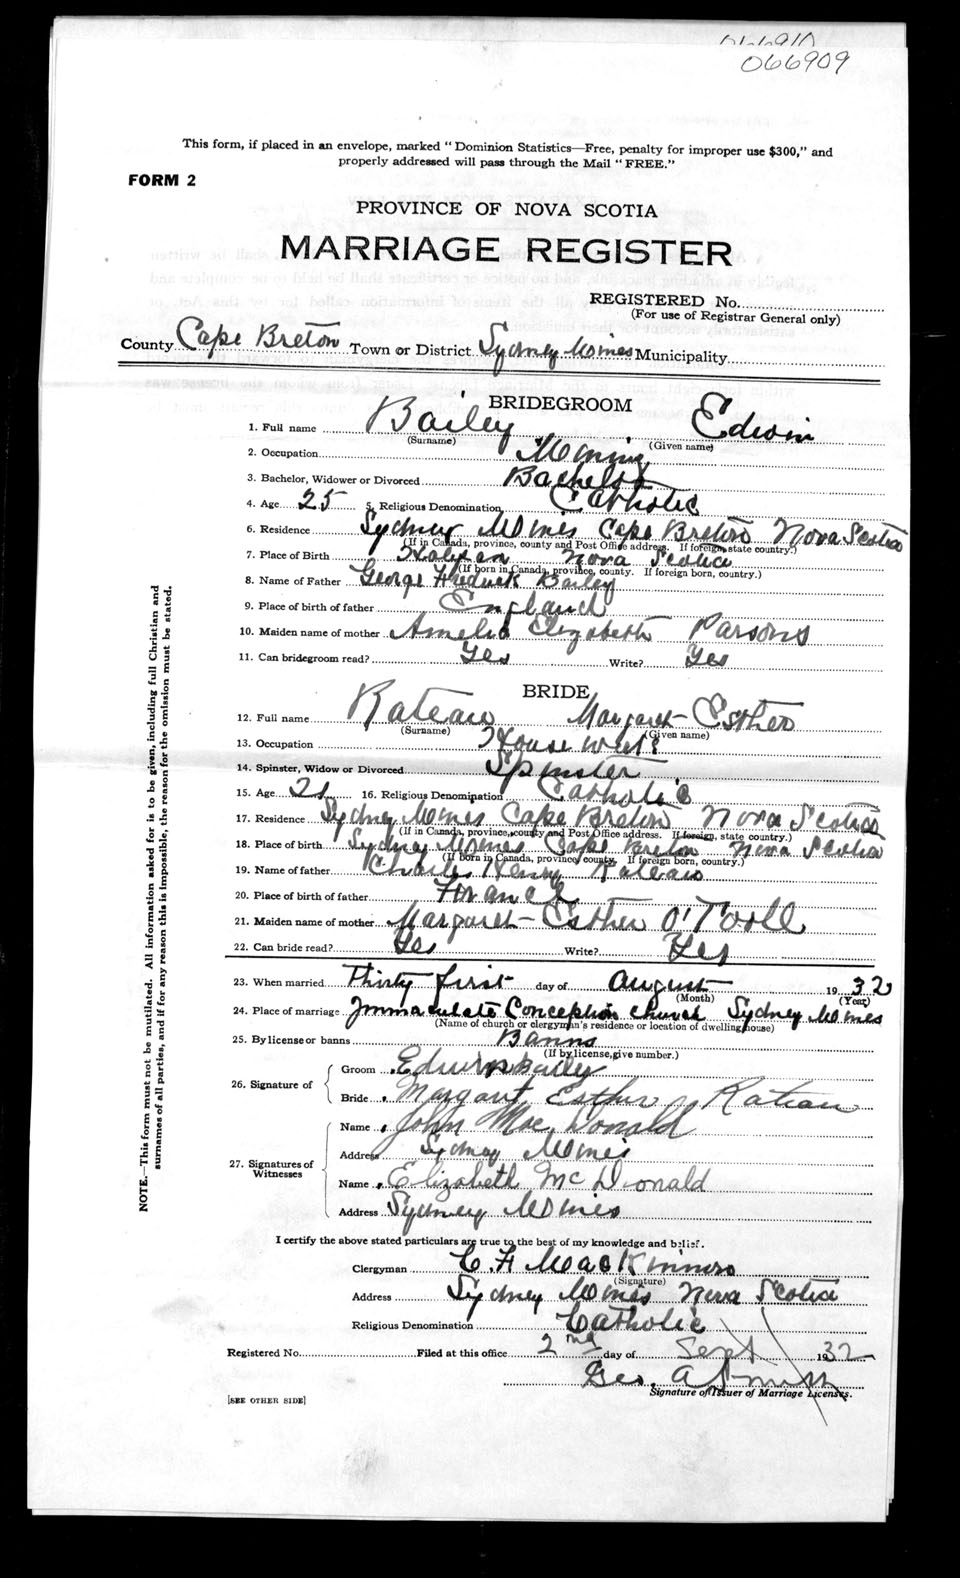 066910
066909
This form, if placed in an envelope, marked "Dominion Statistics—Free, penalty for improper use $300," and
properly addressed will pass through the Mail "FREE."
FORM 2
PROVINCE OF NOVA SCOTIA
MARRIAGE REGISTER
REGISTERED No.
(For use of Registrar General only)
County Cape Breton Town or District Sydney Mines Municipality
BRIDEGROOM
1. Full name Bailey Edwin
(Surname) (Given name)
2. Occupation Mining
3. Bachelor, Widower or Divorced Bachelor
4. Age 25 5. Religious Denomination Catholic
6. Residence Sydney Mines Cape Breton Nova Scotia
(If in Canada, province, county and Post Office address. If foreign, state country.)
7. Place of Birth Halifax Nova Scotia
(If born in Canada, province, county. If foreign born, country.)
8. Name of Father George Fredrick Bailey
9. Place of birth of father England
10. Maiden name of mother Amelia Elizabeth Parsons
11. Can bridegroom read? Yes Write? Yes
BRIDE
12. Full name Rateau Margaret Esther
(Surname) (Given name)
13. Occupation House
14. Spinster, Widow or Divorced Spinster
15. Age 21 16. Religious Denomination Catholic
17. Residence Sydney Mines Cape Breton Nova Scotia
(If in Canada, province, county and Post Office address. If foreign, state country.)
18. Place of birth Sydney Mines Cape Breton Nova Scotia
(If born in Canada, province county. If foreign born, country.)
19. Name of father Charles Henry Rateau
20. Place of birth of father France
21. Maiden name of mother Margaret Esther O'Tooll
22. Can bride read? Yes Write? Yes
23. When married Thirty first day of August 1932
(Month) (Year)
24. Place of marriage Immaculate Conception Church Sydney Mines
(Name of church or clergyman's residence or location of dwelling house)
25. By license or banns Banns
(If by license, give number.)
26. Signature of
Groom Edwin Bailey
Bride Margaret Esther Rateau
27. Signatures of Witnesses
Name John MacDonald
Address Sydney Mines
Name Elizabeth McDonald
Address Sydney Mines
I certify the above stated particulars are true to the best of my knowledge and belief.
Clergyman C. F. MacKinnon
(Signature)
Address Sydney Mines Nova Scotia
Religious Denomination Catholic
Registered No. Filed at this office 2nd day of Sept 1932
Geo. A Smith
Signature of Issuer of Marriage Licenses.
[SEE OTHER SIDE]
NOTE.—This form must not be mutilated. All information asked for is to be given, including full Christian and
surnames of all parties, and if for any reason this is impossible, the reason for the omission must be stated.